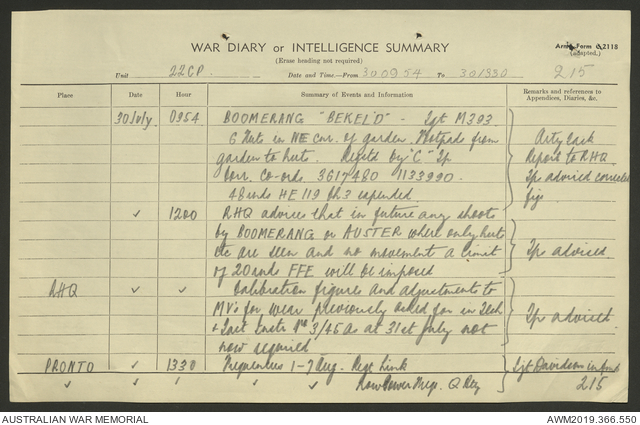 WAR DIARY or INTELLIGENCE SUMMARY
Army Form C2118
(Erase heading not required)
(adapted.)
Unit 22 CP. Date and Time—From 300954 To 301330 215
Place Date Hour Summary of Events and Information Remarks and references to Appendices, Diaries, &c.
30 July 0954 BOOMERANG "BEKEL'D" - Tgt M393
6 Huts in NE cor. of garden. Footpads from Arty task
garden to huts. Regtd by "C" Tp Report to RHQ
Corr. Co-ords 3617480 1133990. Tps advised corrected
48 rnds HE 119 Ch 3 expended figs
✓ 1200 RHQ advises that in future any shoots
by BOOMERANG or AUSTER where only huts
etc are seen and no movement a limit Tps advised
of 20 rnds FFE will be imposed
RHQ ✓ ✓ Calibration figures and adjustments to
MV's for wear previously asked for in Tech
& Tact Instr No 3/45 as at 31st July not Tps advised
now required
PRONTO ✓ 1330 Frequencies 1-7 Aug. Regt Link Sgt Davidson
✓ ✓ ✓ ✓ Low Power Freq. Q Bty 215
AUSTRALIAN WAR MEMORIAL AWM2019.366.550